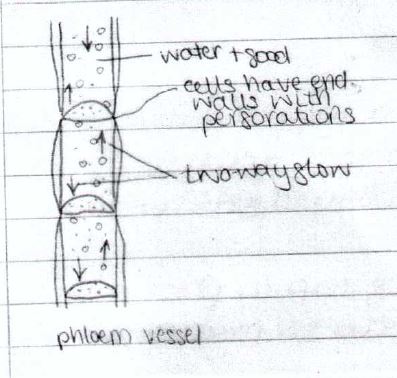 water + food
cells have end
walls with
perforations
two way flow
phloem vessel